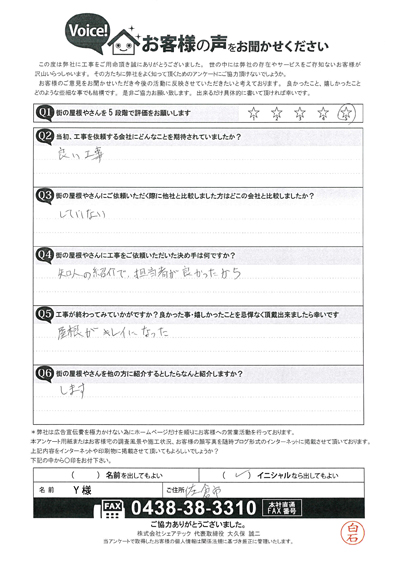 Voice! お客様の声をお聞かせください
この度は弊社に工事をご用命頂き誠にありがとうございました。 世の中には弊社の存在やサービスをご存知ないお客様が
沢山いらっしゃいます。 その方たちに弊社をよく知って頂くためのアンケートにご協力頂けないでしょうか。
お客様のご意見をお聞かせいただき今後の活動に反映させていただきたいと考えております。 良かったこと、嬉しかったこと
どのような些細な事でも結構です。 是非ご協力お願い致します。 出来るだけ具体的に書いて頂ければ幸いです。
Q1 街の屋根やさんを5段階で評価をお願いします
1 2 3 4 5
Q2 当初、工事を依頼する会社にどんなことを期待されていましたか?
良い工事
Q3 街の屋根やさんにご依頼いただく際に他社と比較しました方はどこの会社と比較しましたか?
していない
Q4 街の屋根やさんに工事をご依頼いただいた決め手は何ですか?
知人の紹介で、担当者が良かったから
Q5 工事が終わってみていかがですか?良かった事・嬉しかったことを忌憚なく頂戴出来ましたら幸いです
屋根がキレイになった
Q6 街の屋根やさんを他の方に紹介するとしたらなんと紹介しますか?
します
*弊社は広告宣伝費を極力かけない為にホームページだけを頼りにお客様への営業活動を行っております。
本アンケート用紙またはお客様宅での調査風景や施工状況、お客様の顔写真を随時ブログ形式のインターネットに掲載させて頂いております。
上記内容をインターネットや印刷物に掲載させて頂いてもよろしいでしょうか?
下記の中から〇印をお付下さい。
( ) 名前を出してもよい ( ✓ ) イニシャルなら出してもよい
名前 Y 様 ご住所/ 佐倉市
FAX 0438-38-3310 本社直通 FAX番号
ご協力ありがとうございました。
株式会社シェアテック 代表取締役 大久保 誠二
当アンケートで取得した お客様の個人情報は関係法規に基づき厳正に管理いたします。
白石